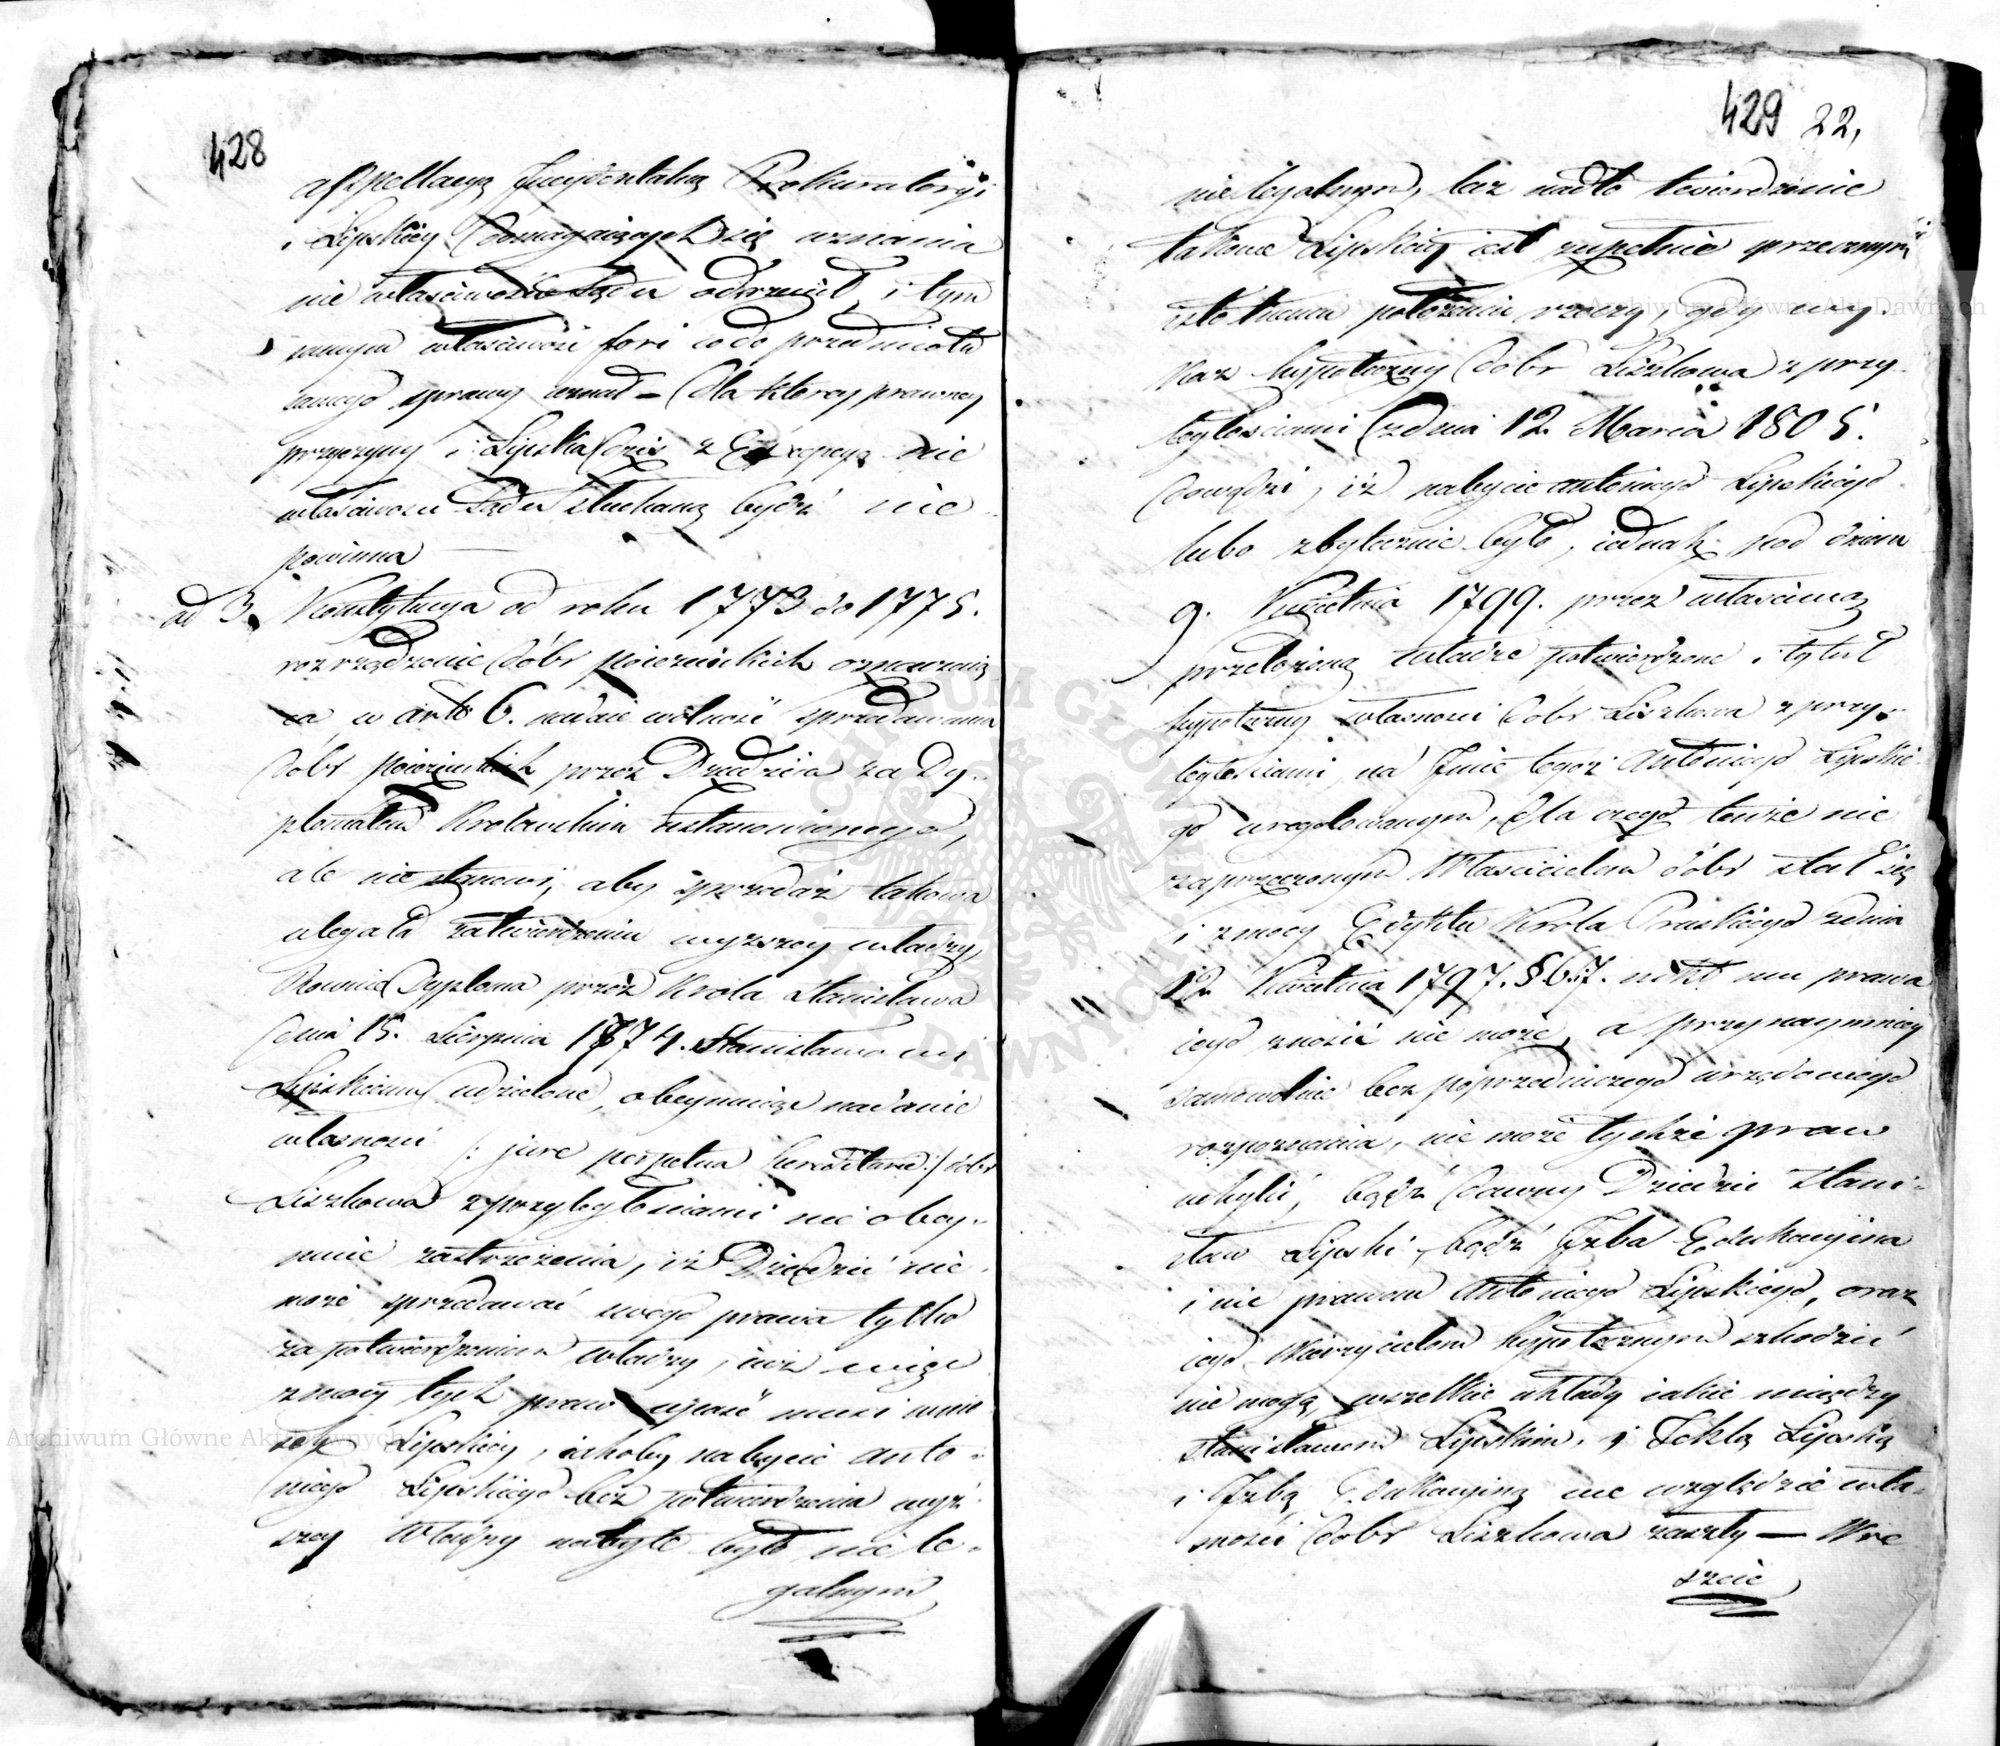 428
appellacyą Incydentalną Prokuratoryi
i Lipskiey domagaiących się uznania
nie właściwości Sądu odrzucił, i tym
samym właściwość fori co do przedmiotu
samego sprawy uznał – dla którey prawney
przyczyny i Lipska dziś z Excepcyą nie
właściwości Sądu słuchaną bydź nie
powinna
ad 3. Konstytucya od roku 1773 do 1775.
rozrządzenie dóbr pojezuickich oznaczaią
ca w art. 6. nadaie wolność sprzedawania
dóbr pojezuickich przez Dziedzica za Dy-
plomatem Królewskim ustanowionego,
ale nie stanowi, aby sprzedaż takowa
ulegała zatwierdzeniu wyższey władzy,
Równie Dyploma przez Króla Stanisława
dnia 15. Sierpnia 1774. Stanisławowi
Lipskiemu udzielone, obeymuiące nadanie
własności /: jure perpetua hereditario :/ dóbr
Liszkowa z przyległościami nie obey-
muie zastrzeżenia, iż Dziedzic nie
może sprzedawać swego prawa tylko
za potwierdzeniem władzy, iuż więc
z mocy tych praw upaść musi wnio
sek Lipskiey, iakoby nabycie Anto-
niego Lipskiego bez potwierdzenia wyż
szey Władzy nabyte było nie le-
galnym
429 22,
nielegalnym, lecz nadto twierdzenie
takowe Lipskiey iest zupełnie sprzecznym
istotnemu położeniu rzeczy, gdy wy-
kaz hypoteczny dóbr Liszkowa z przy-
ległościami z dnia 12. Marca 1805.
dowodzi, iż nabycie Antoniego Lipskiego
lubo zbytecznie było, iednak pod dniem
9. Kwietnia 1799. przez właściwą
przełożoną władzę potwierdzone i tytuł
hypoteczny własności dóbr Liszkowa z przy-
ległościami, na Imie tegoż Antoniego Lipskie-
go uregulowanym, dla czego tenże nie
zaprzeczonym Właścicielem dóbr stał się
i z mocy Edyktu Króla Pruskiego z dnia
12. Kwietnia 1797. § 6. 7. nikt mu prawa
iego znosić nie może, a przynaymniey
samowolnie bez poprzedniczego urzędowego
rozpoznania, nie może tychże praw
uchylić, bądź dawny Dziedzic Stani-
sław Lipski, bądź Izba Edukacyina
i nie prawom Antoniego Lipskiego, oraz
iego Wierzycielom hypotecznym szkodzić
nie mogą wszelkie układy iakie między
Stanisławem Lipskim, i Teklą Lipską
i Izbą Edukacyiną we względzie wła-
sności dóbr Liszkowa zaszły — Wre
szcie
Archiwum Główne Akt Dawnych
Archiwum Główne Akt Dawnych
ARCHIWUM GŁÓWNE AKT DAWNYCH